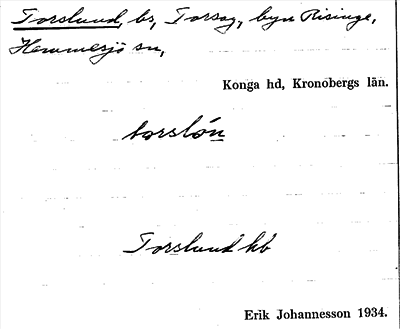 Torslund, bs, Torsag, byn Risinge,
Hemmesjö sn,
Konga hd, Kronobergs län.
torslón
Torslund kb
Erik Johannesson 1934.